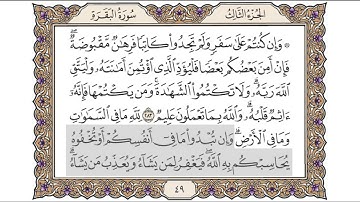 الجزء الثالث سورة البقرة
۞ وَإِن كُنتُمْ عَلَىٰ سَفَرٍ وَلَمْ تَجِدُوا۟ كَاتِبًا فَرِهَٰنٌ مَّقْبُوضَةٌ ۖ
فَإِنْ أَمِنَ بَعْضُكُم بَعْضًا فَلْيُؤَدِّ ٱلَّذِى ٱؤْتُمِنَ أَمَٰنَتَهُۥ وَلْيَتَّقِ
ٱللَّهَ رَبَّهُۥ ۗ وَلَا تَكْتُمُوا۟ ٱلشَّهَٰدَةَ ۚ وَمَن يَكْتُمْهَا فَإِنَّهُۥٓ
ءَاثِمٌ قَلْبُهُۥ ۗ وَٱللَّهُ بِمَا تَعْمَلُونَ عَلِيمٌ ٢٨٣ لِّلَّهِ مَا فِى ٱلسَّمَٰوَٰتِ
وَمَا فِى ٱلْأَرْضِ ۗ وَإِن تُبْدُوا۟ مَا فِىٓ أَنفُسِكُمْ أَوْ تُخْفُوهُ
يُحَاسِبْكُم بِهِ ٱللَّهُ ۖ فَيَغْفِرُ لِمَن يَشَآءُ وَيُعَذِّبُ مَن يَشَآءُ ۗ
٤٩